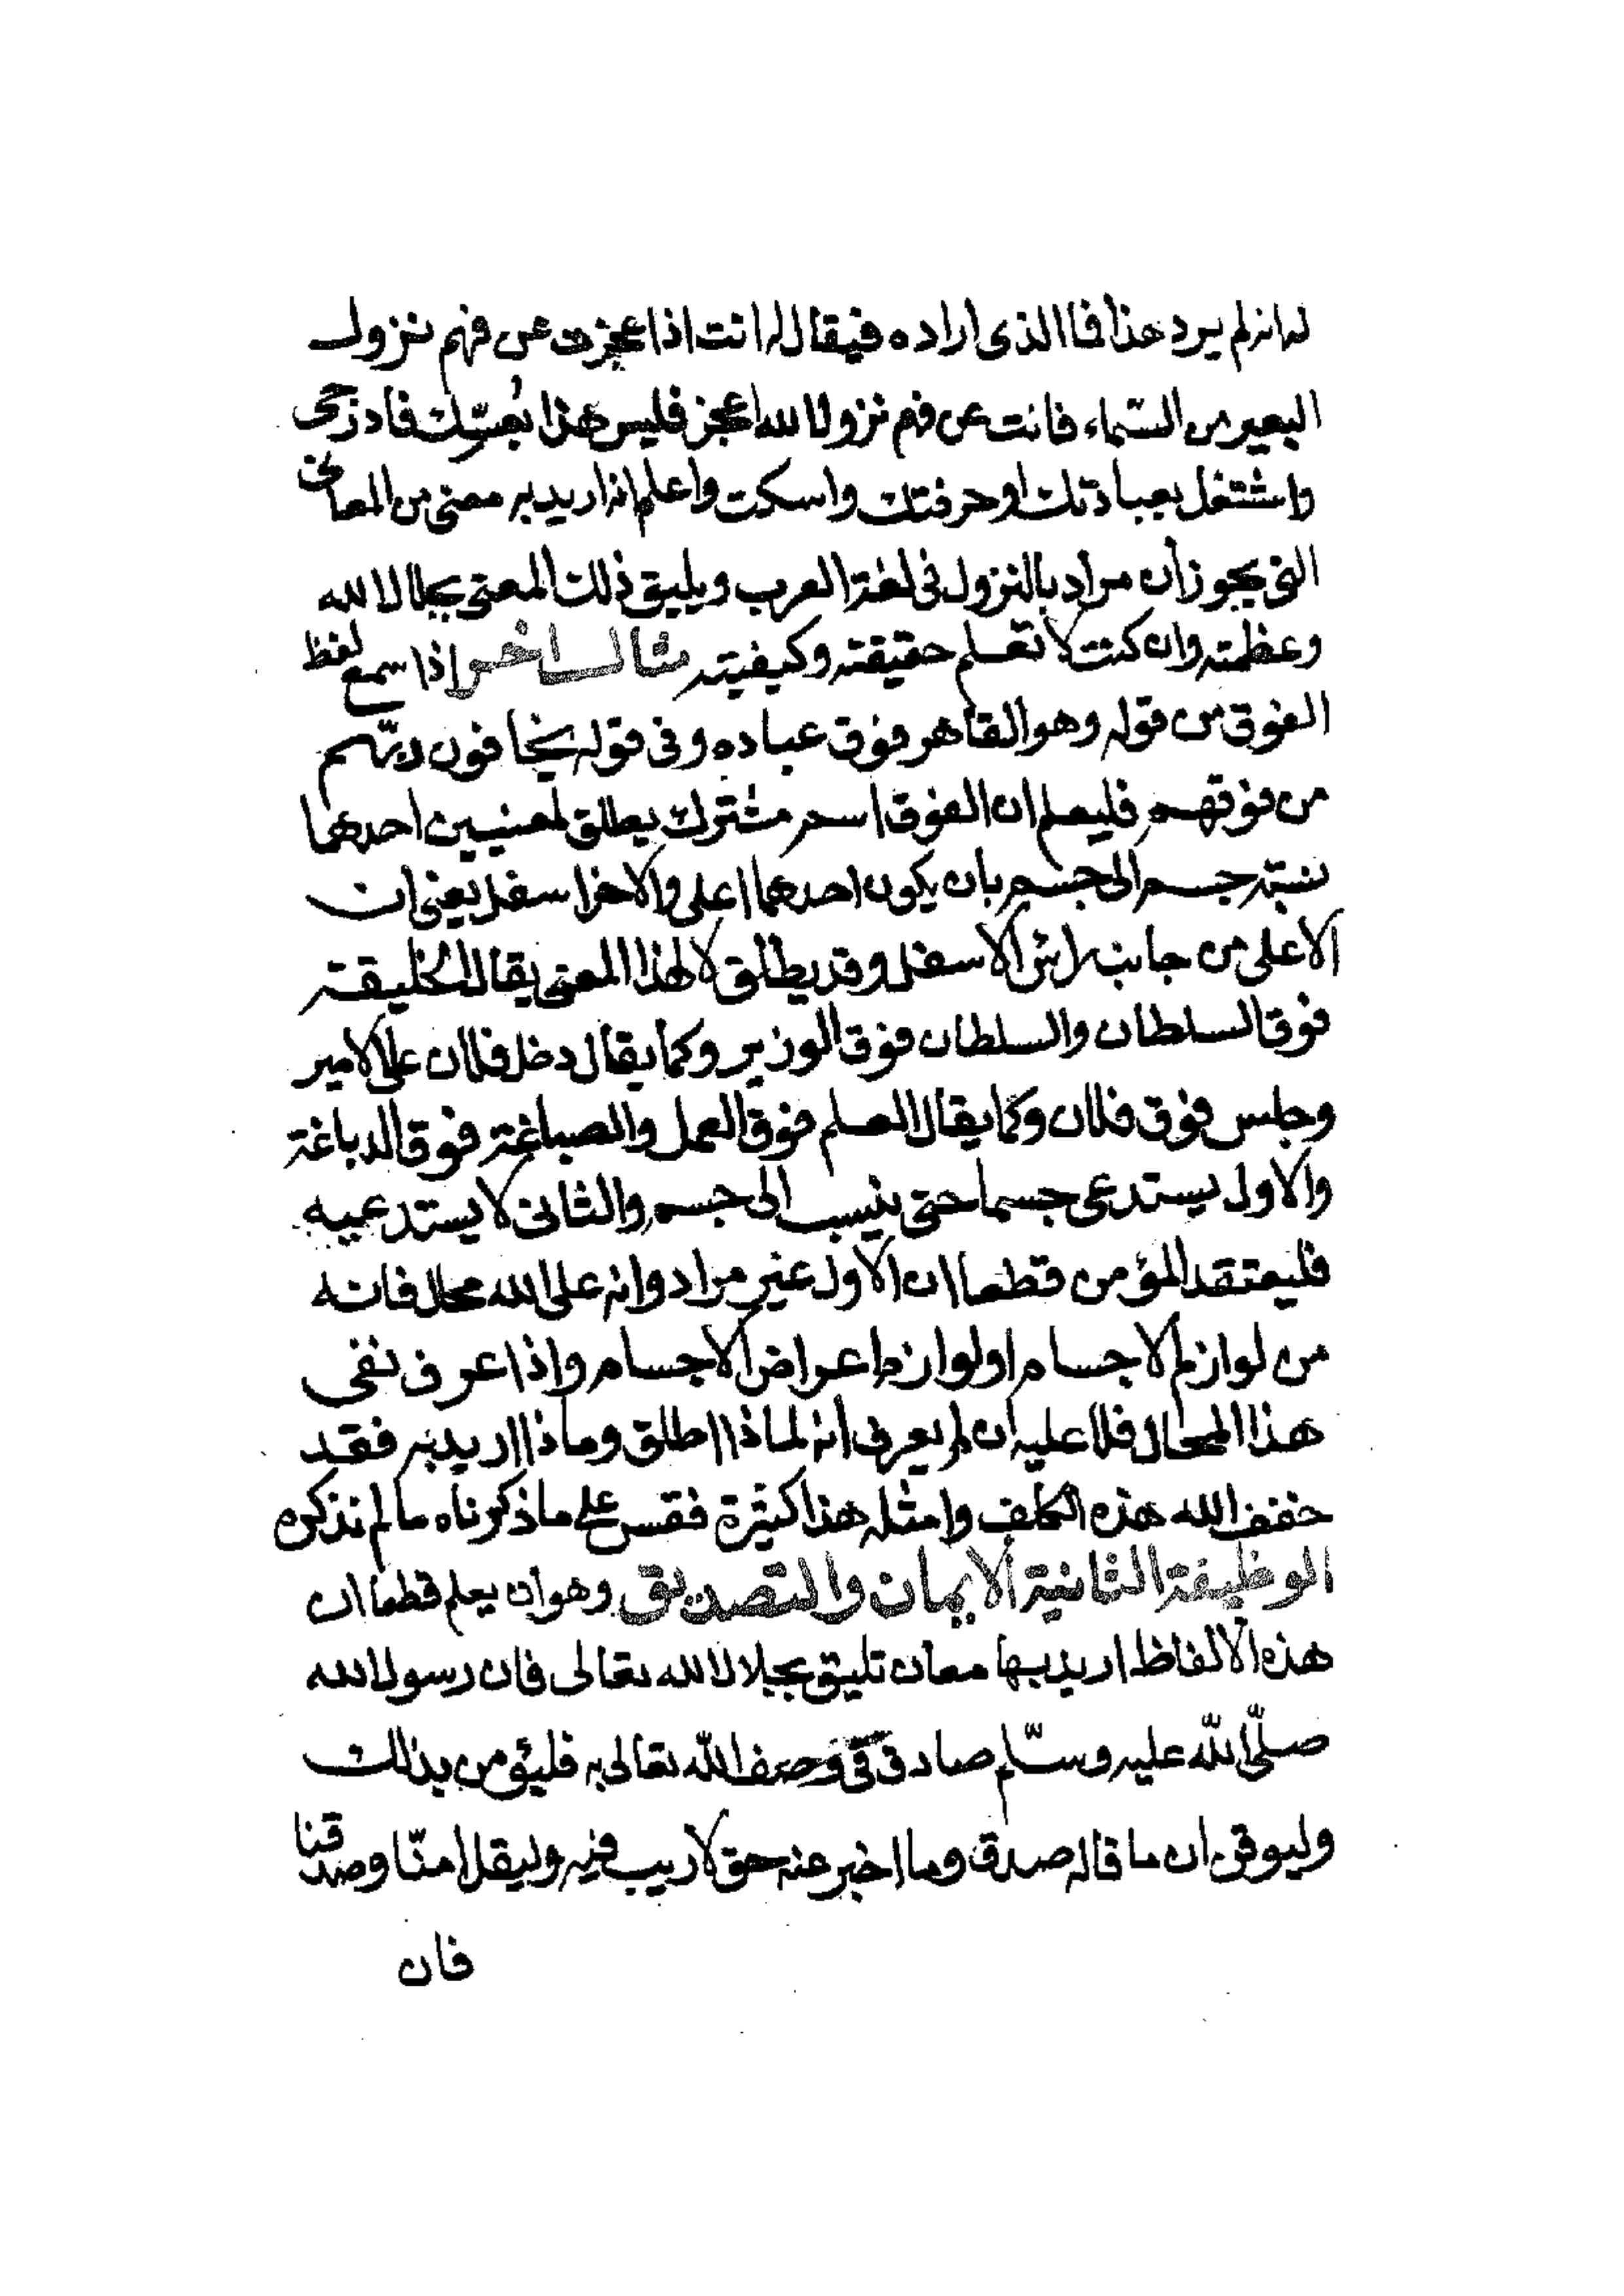 له انه لم يرد هذا فما الذى اراده فيقال له انت اذا عجزت عن فهم نزول
البعير من السّماء فانت عن فهم نزول الله اعجز فليس هذا بعشّك فادرجى
واشتغل بعبادتك او حرفتك واسكت واعلم انه اريد به معنى من المعانى
التى يجوز أن مراد بالنزول فى لغة العرب ويليق ذلك المعنى بجلال الله
وعظمته وان كنت لا تعلم حقيقته وكيفيته مثال اخر اذا سمع لفظ
الفوق من قوله وهو القاهر فوق عباده وفى قوله يخافون ربّهم
من فوقهم فليعلم ان الفوق اسم مشترك يطلق لمعنيين احدهما
نسبة جسم الى جسم بان يكون احدهما اعلى والاخر اسفل يعنى ان
الاعلى من جانب راس الاسفل وقد يطلق لا لهذا المعنى يقال الخليفة
فوق السلطان والسلطان فوق الوزير وكما يقال دخل فلان على الامير
وجلس فوق فلان وكما يقال العلم فوق العمل والصباغة فوق الدباغة
والاول يستدعى جسما حتى ينسب الى جسم والثانى لا يستدعيه
فليعتقد المؤمن قطعا ان الاول غير مراد وانه على الله محال فانه
من لوازم الاجسام او لوازم اعراض الاجسام واذا عرف نفى
هذا المحال فلا عليه ان لم يعرف انه لماذا اطلق وماذا اريد به فقد
خفف الله هذه الكلف وامثله هذا كثيرة فقس على ما ذكرناه ما لم نذكره
الوظيفة الثانية الايمان والتصديق وهو ان يعلم قطعا ان
هذه الالفاظ اريد بها معان تليق بجلال الله تعالى فان رسول الله
صلّى الله عليه وسّلم صادق فى وصف الله تعالى به فليؤمن بذلك
وليوقن ان ما قاله صدق وما اخبر عنه حق لا ريب فيه وليقل امنّا وصدقنا
فان